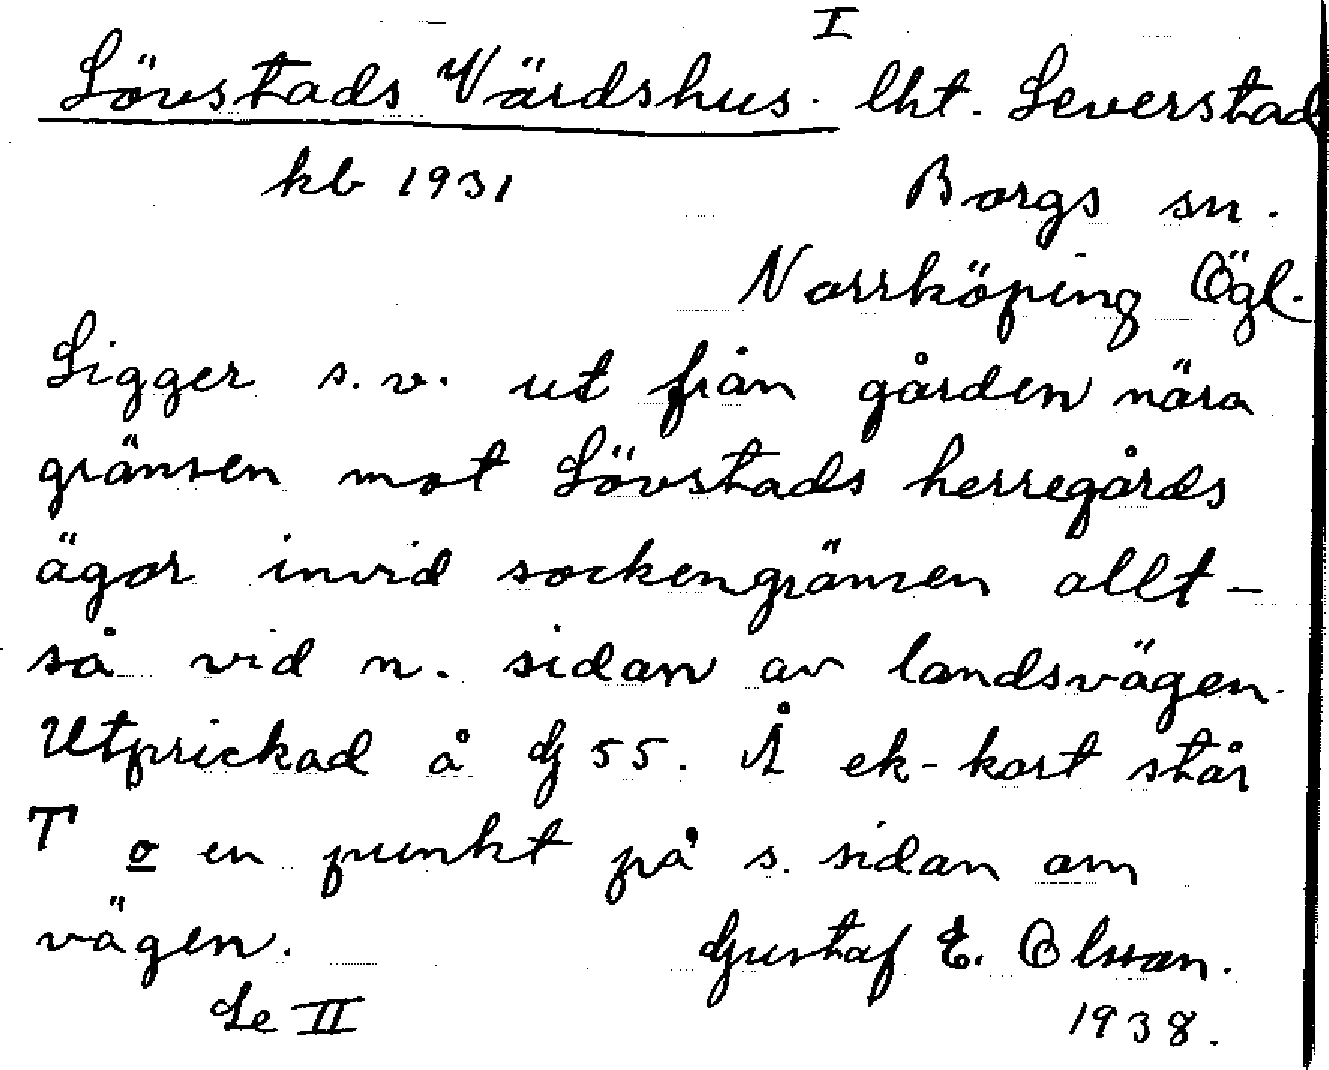 I
Lövstads Värdshus. lht. Leverstad
kb 1931 Borgs sn.
Norrköping Ögl.
Ligger s.v. ut från gården nära
gränsen mot Lövstads herregårds
ägor invid sockengränsen allt-
så vid n. sidan av landsvägen.
Utprickad å Gf 55. Å ek-kart står
T o en punkt på s. sidan om
vägen. Gustaf E. Olsson.
Se II 1938.